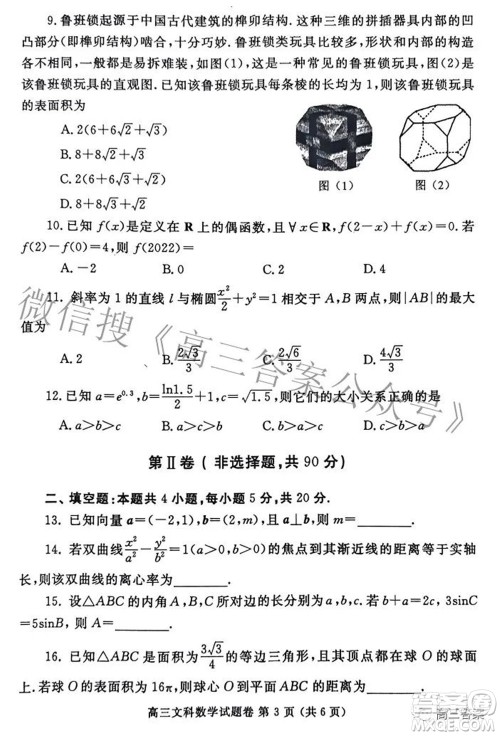 9. 鲁班锁起源于中国古代建筑的榫卯结构. 这种三维的拼插器具内部的凹
凸部分(即榫卯结构)啮合, 十分巧妙. 鲁班锁类玩具比较多, 形状和内部的构造
各不相同, 一般都是易拆难装, 如图(1), 这是一种常见的鲁班锁玩具, 图(2)是
该鲁班锁玩具的直观图. 已知该鲁班锁玩具每条棱的长均为 1, 则该鲁班锁玩具
的表面积为
A. 2(6+6√2+√3)
B. 8+8√2+√3
C. 2(6+√2+√3)
D. 8+8√2+√3
图(1) 图(2)
10. 已知 f(x)是定义在 R 上的偶函数, 且 ∀x∈R, f(2-x)+f(x)=0. 若
f(2)-f(0)=4, 则 f(2022)=
A. -2 B. 0 C. 2 D. 4
11. 斜率为 1 的直线 l 与椭圆 x²/2+y²=1 相交于 A, B 两点, 则|AB|的最大
值为
A. 2 B. 2√3/3 C. 2√6/3 D. 4√3/3
12. 已知 a=e^0.3, b=ln1.5/2+1, c=√1.5, 则它们的大小关系正确的是
A. a>b>c B. a>c>b C. b>a>c D. c>b>a
第Ⅱ卷(非选择题, 共 90 分)
二、填空题: 本题共 4 小题, 每小题 5 分, 共 20 分.
13. 已知向量 a=(-2,1), b=(2,m), 且 a⊥b, 则 m=______.
14. 若双曲线 x²/a²-y²/b²=1(a>0,b>0)的焦点到其渐近线的距离等于实轴
长, 则该双曲线的离心率为______.
15. 设△ABC 的内角 A, B, C 所对边的长分别为 a, b, c. 若 b+a=2c, 3sinC
=5sinB, 则 A=______.
16. 已知△ABC 是面积为 3√3/4 的等边三角形, 且其顶点都在球 O 的球面
上. 若球 O 的表面积为 16π, 则球心 O 到平面 ABC 的距离为______.
高三文科数学试题卷 第 3 页(共 6 页)
微信搜《高三答案公众号》
高三答案